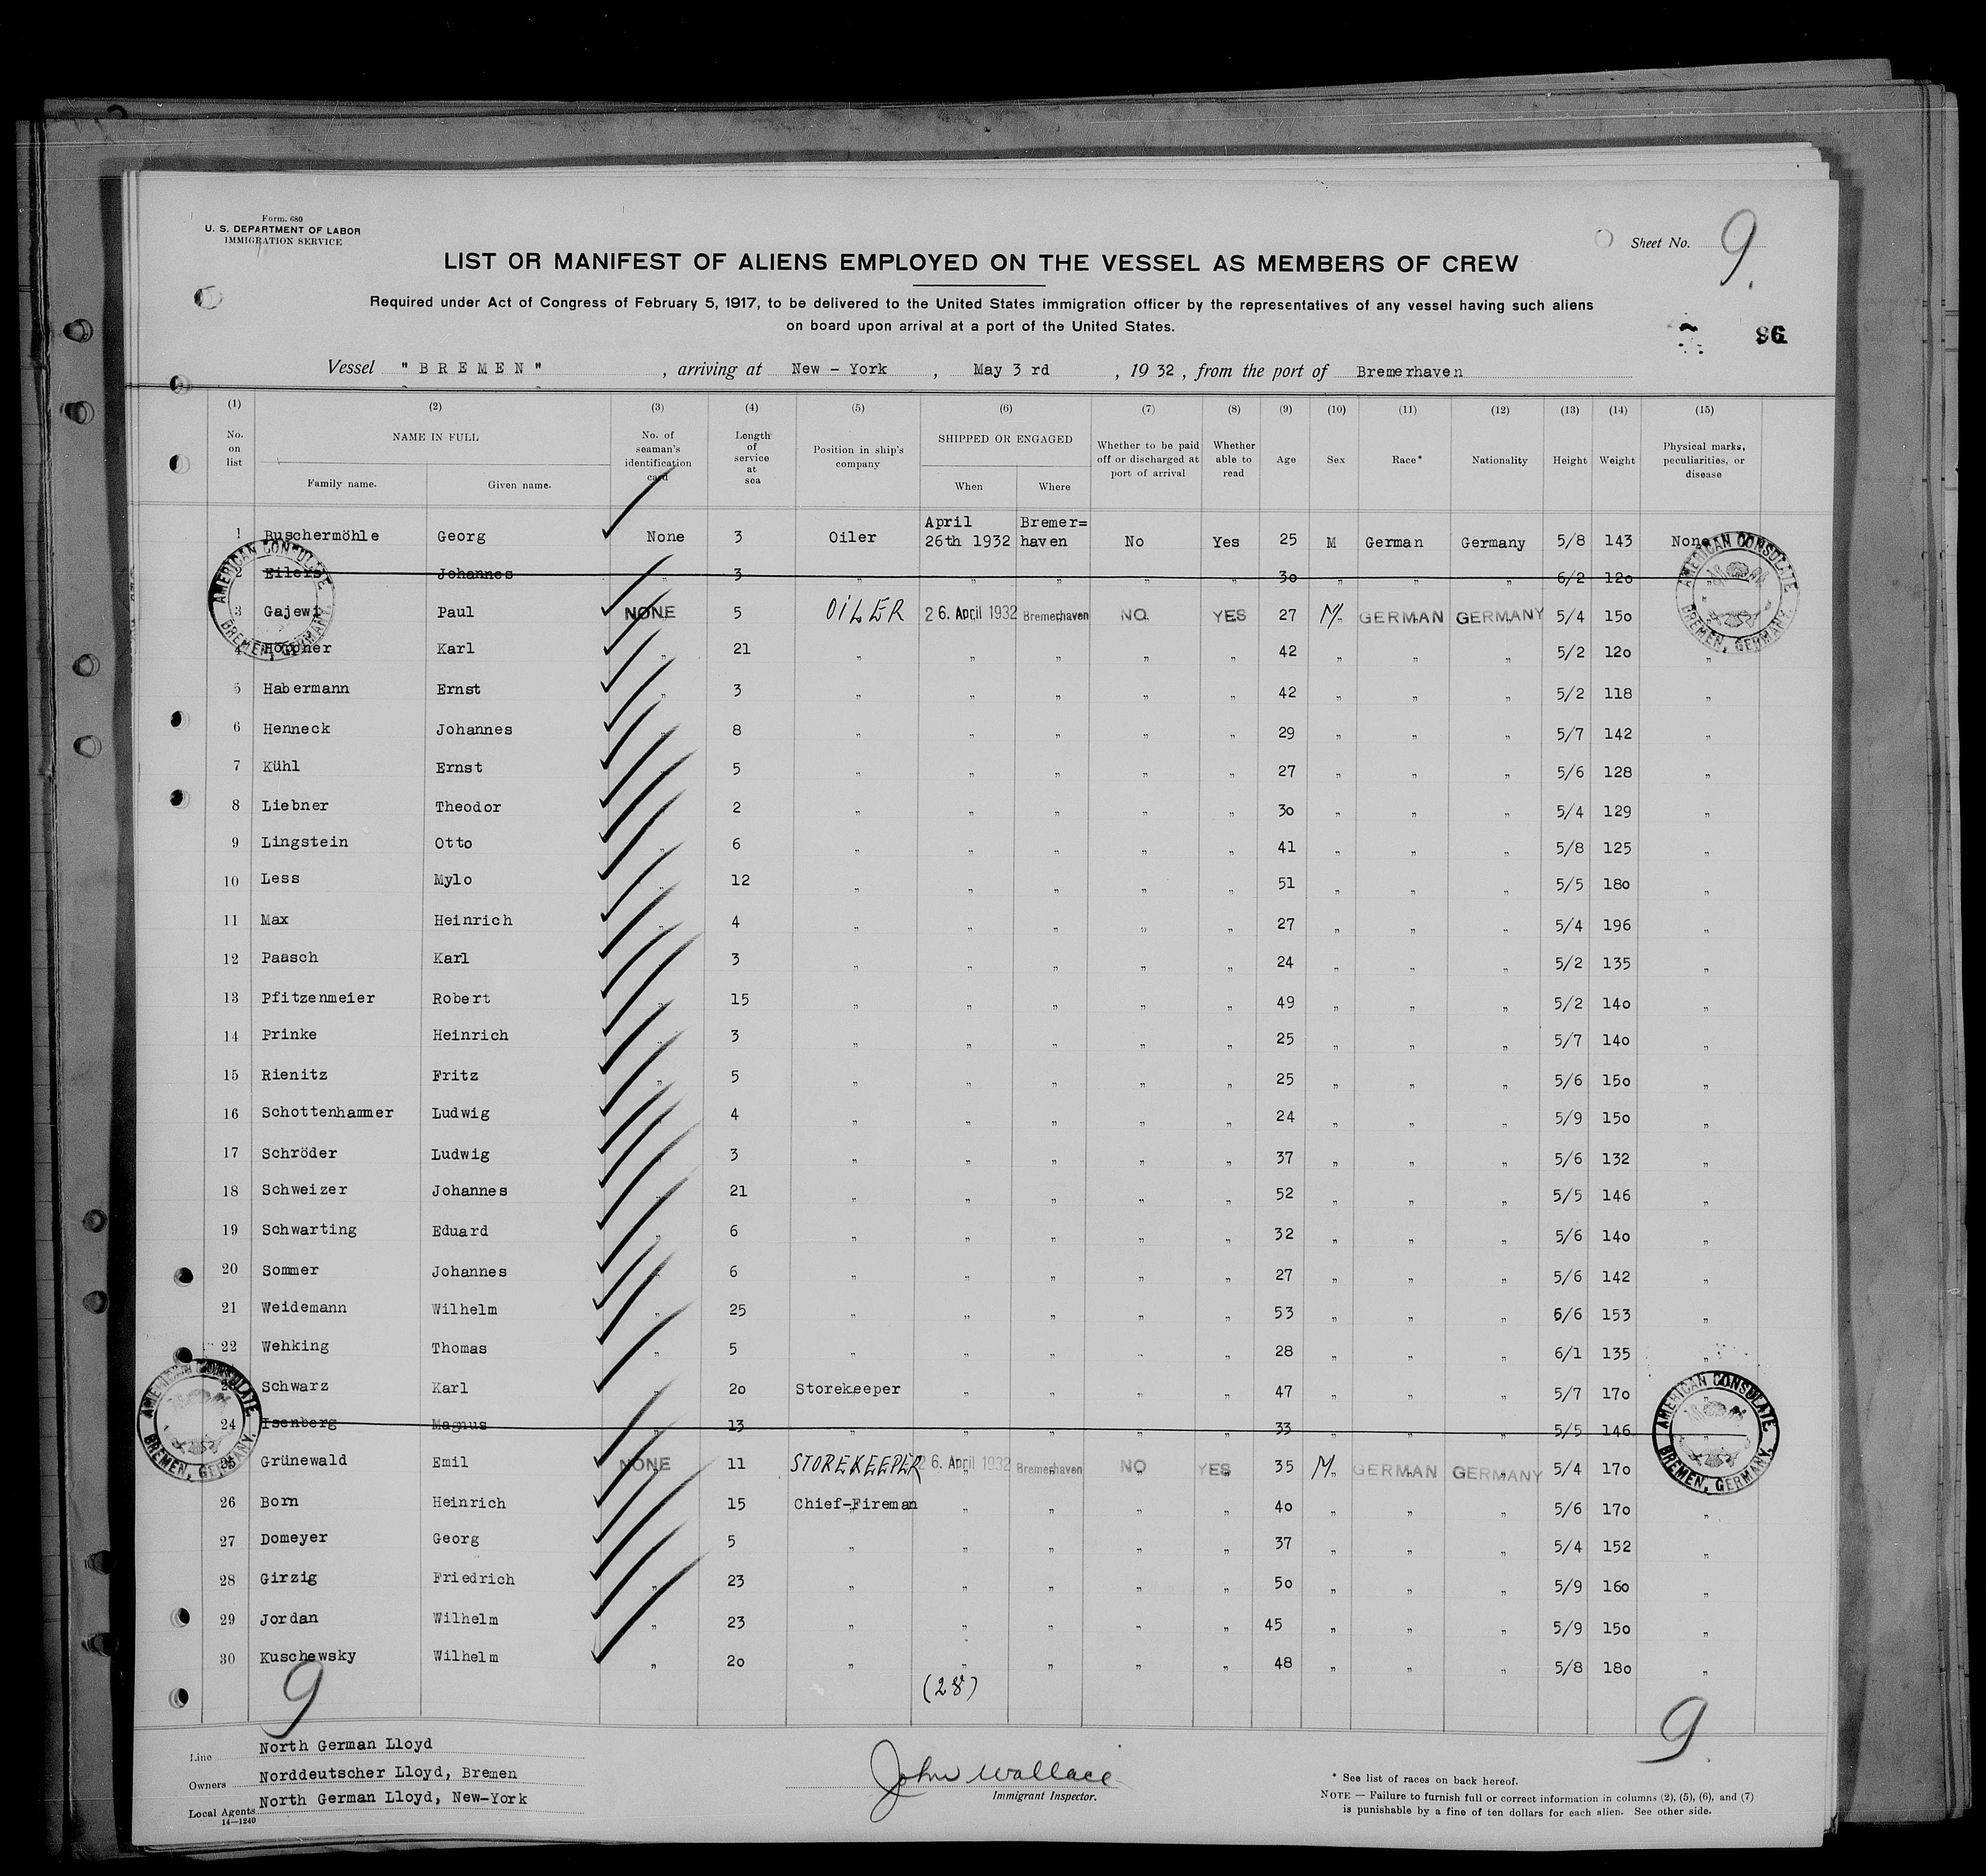 Form. 680
U. S. DEPARTMENT OF LABOR
IMMIGRATION SERVICE
Sheet No. 9.
LIST OR MANIFEST OF ALIENS EMPLOYED ON THE VESSEL AS MEMBERS OF CREW
Required under Act of Congress of February 5, 1917, to be delivered to the United States immigration officer by the representatives of any vessel having such aliens
on board upon arrival at a port of the United States.
96
Vessel "BREMEN", arriving at New - York, May 3 rd, 1932, from the port of Bremerhaven
(1) (2) (3) (4) (5) (6) (7) (8) (9) (10) (11) (12) (13) (14) (15)
No. on list NAME IN FULL Family name. Given name. No. of seaman's identification card Length of service at sea Position in ship's company SHIPPED OR ENGAGED When Where Whether to be paid off or discharged at port of arrival Whether able to read Age Sex Race* Nationality Height Weight Physical marks, peculiarities, or disease
1 Buschermöhle Georg None 3 Oiler April 26th 1932 Bremer=haven No Yes 25 M German Germany 5/8 143 None
2 Eilers Johannes 3 „ „ „ „ „ 30 „ „ „ 6/2 120
3 Gajewi Paul NONE 5 OILER 26. April 1932 Bremerhaven NO YES 27 M. GERMAN GERMANY 5/4 150
4 Höppner Karl „ 21 „ „ „ „ „ 42 „ „ „ 5/2 120 „
5 Habermann Ernst „ 3 „ „ „ „ „ 42 „ „ „ 5/2 118 „
6 Henneck Johannes „ 8 „ „ „ „ „ 29 „ „ „ 5/7 142 „
7 Kühl Ernst „ 5 „ „ „ „ „ 27 „ „ „ 5/6 128 „
8 Liebner Theodor „ 2 „ „ „ „ „ 30 „ „ „ 5/4 129 „
9 Lingstein Otto „ 6 „ „ „ „ „ 41 „ „ „ 5/8 125 „
10 Less Mylo „ 12 „ „ „ „ „ 51 „ „ „ 5/5 180 „
11 Max Heinrich „ 4 „ „ „ „ „ 27 „ „ „ 5/4 196 „
12 Paasch Karl „ 3 „ „ „ „ „ 24 „ „ „ 5/2 135 „
13 Pfitzenmeier Robert „ 15 „ „ „ „ „ 49 „ „ „ 5/2 140 „
14 Prinke Heinrich „ 3 „ „ „ „ „ 25 „ „ „ 5/7 140 „
15 Rienitz Fritz „ 5 „ „ „ „ „ 25 „ „ „ 5/6 150 „
16 Schottenhammer Ludwig „ 4 „ „ „ „ „ 24 „ „ „ 5/9 150 „
17 Schröder Ludwig „ 3 „ „ „ „ „ 37 „ „ „ 5/6 132 „
18 Schweizer Johannes „ 21 „ „ „ „ „ 52 „ „ „ 5/5 146 „
19 Schwarting Eduard „ 6 „ „ „ „ „ 32 „ „ „ 5/6 140 „
20 Sommer Johannes „ 6 „ „ „ „ „ 27 „ „ „ 5/6 142 „
21 Weidemann Wilhelm „ 25 „ „ „ „ „ 53 „ „ „ 6/6 153 „
22 Wehking Thomas „ 5 „ „ „ „ „ 28 „ „ „ 6/1 135 „
Schwarz Karl „ 20 Storekeeper „ „ „ „ 47 „ „ „ 5/7 170 „
24 Isenberg Magnus 13 „ „ „ „ „ 33 „ „ „ 5/5 146 „
25 Grünewald Emil NONE 11 STOREKEEPER 26. April 1932 Bremerhaven NO YES 35 M. GERMAN GERMANY 5/4 170
26 Born Heinrich „ 15 Chief-Fireman „ „ „ „ 40 „ „ „ 5/6 170 „
27 Domeyer Georg „ 5 „ „ „ „ „ 37 „ „ „ 5/4 152 „
28 Girzig Friedrich „ 23 „ „ „ „ „ 50 „ „ „ 5/9 160 „
29 Jordan Wilhelm „ 23 „ „ „ „ „ 45 „ „ „ 5/9 150 „
30 Kuschewsky Wilhelm „ 20 „ „ „ „ „ 48 „ „ „ 5/8 180 „
(28)
9
9
AMERICAN CONSULATE BREMEN, GERMANY.
AMERICAN CONSULATE BREMEN, GERMANY.
AMERICAN CONSULATE BREMEN, GERMANY.
AMERICAN CONSULATE BREMEN, GERMANY.
Line North German Lloyd
Owners Norddeutscher Lloyd, Bremen
Local Agents North German Lloyd, New-York
14—1240
John Wallace
Immigrant Inspector.
* See list of races on back hereof.
NOTE — Failure to furnish full or correct information in columns (2), (5), (6), and (7)
is punishable by a fine of ten dollars for each alien. See other side.